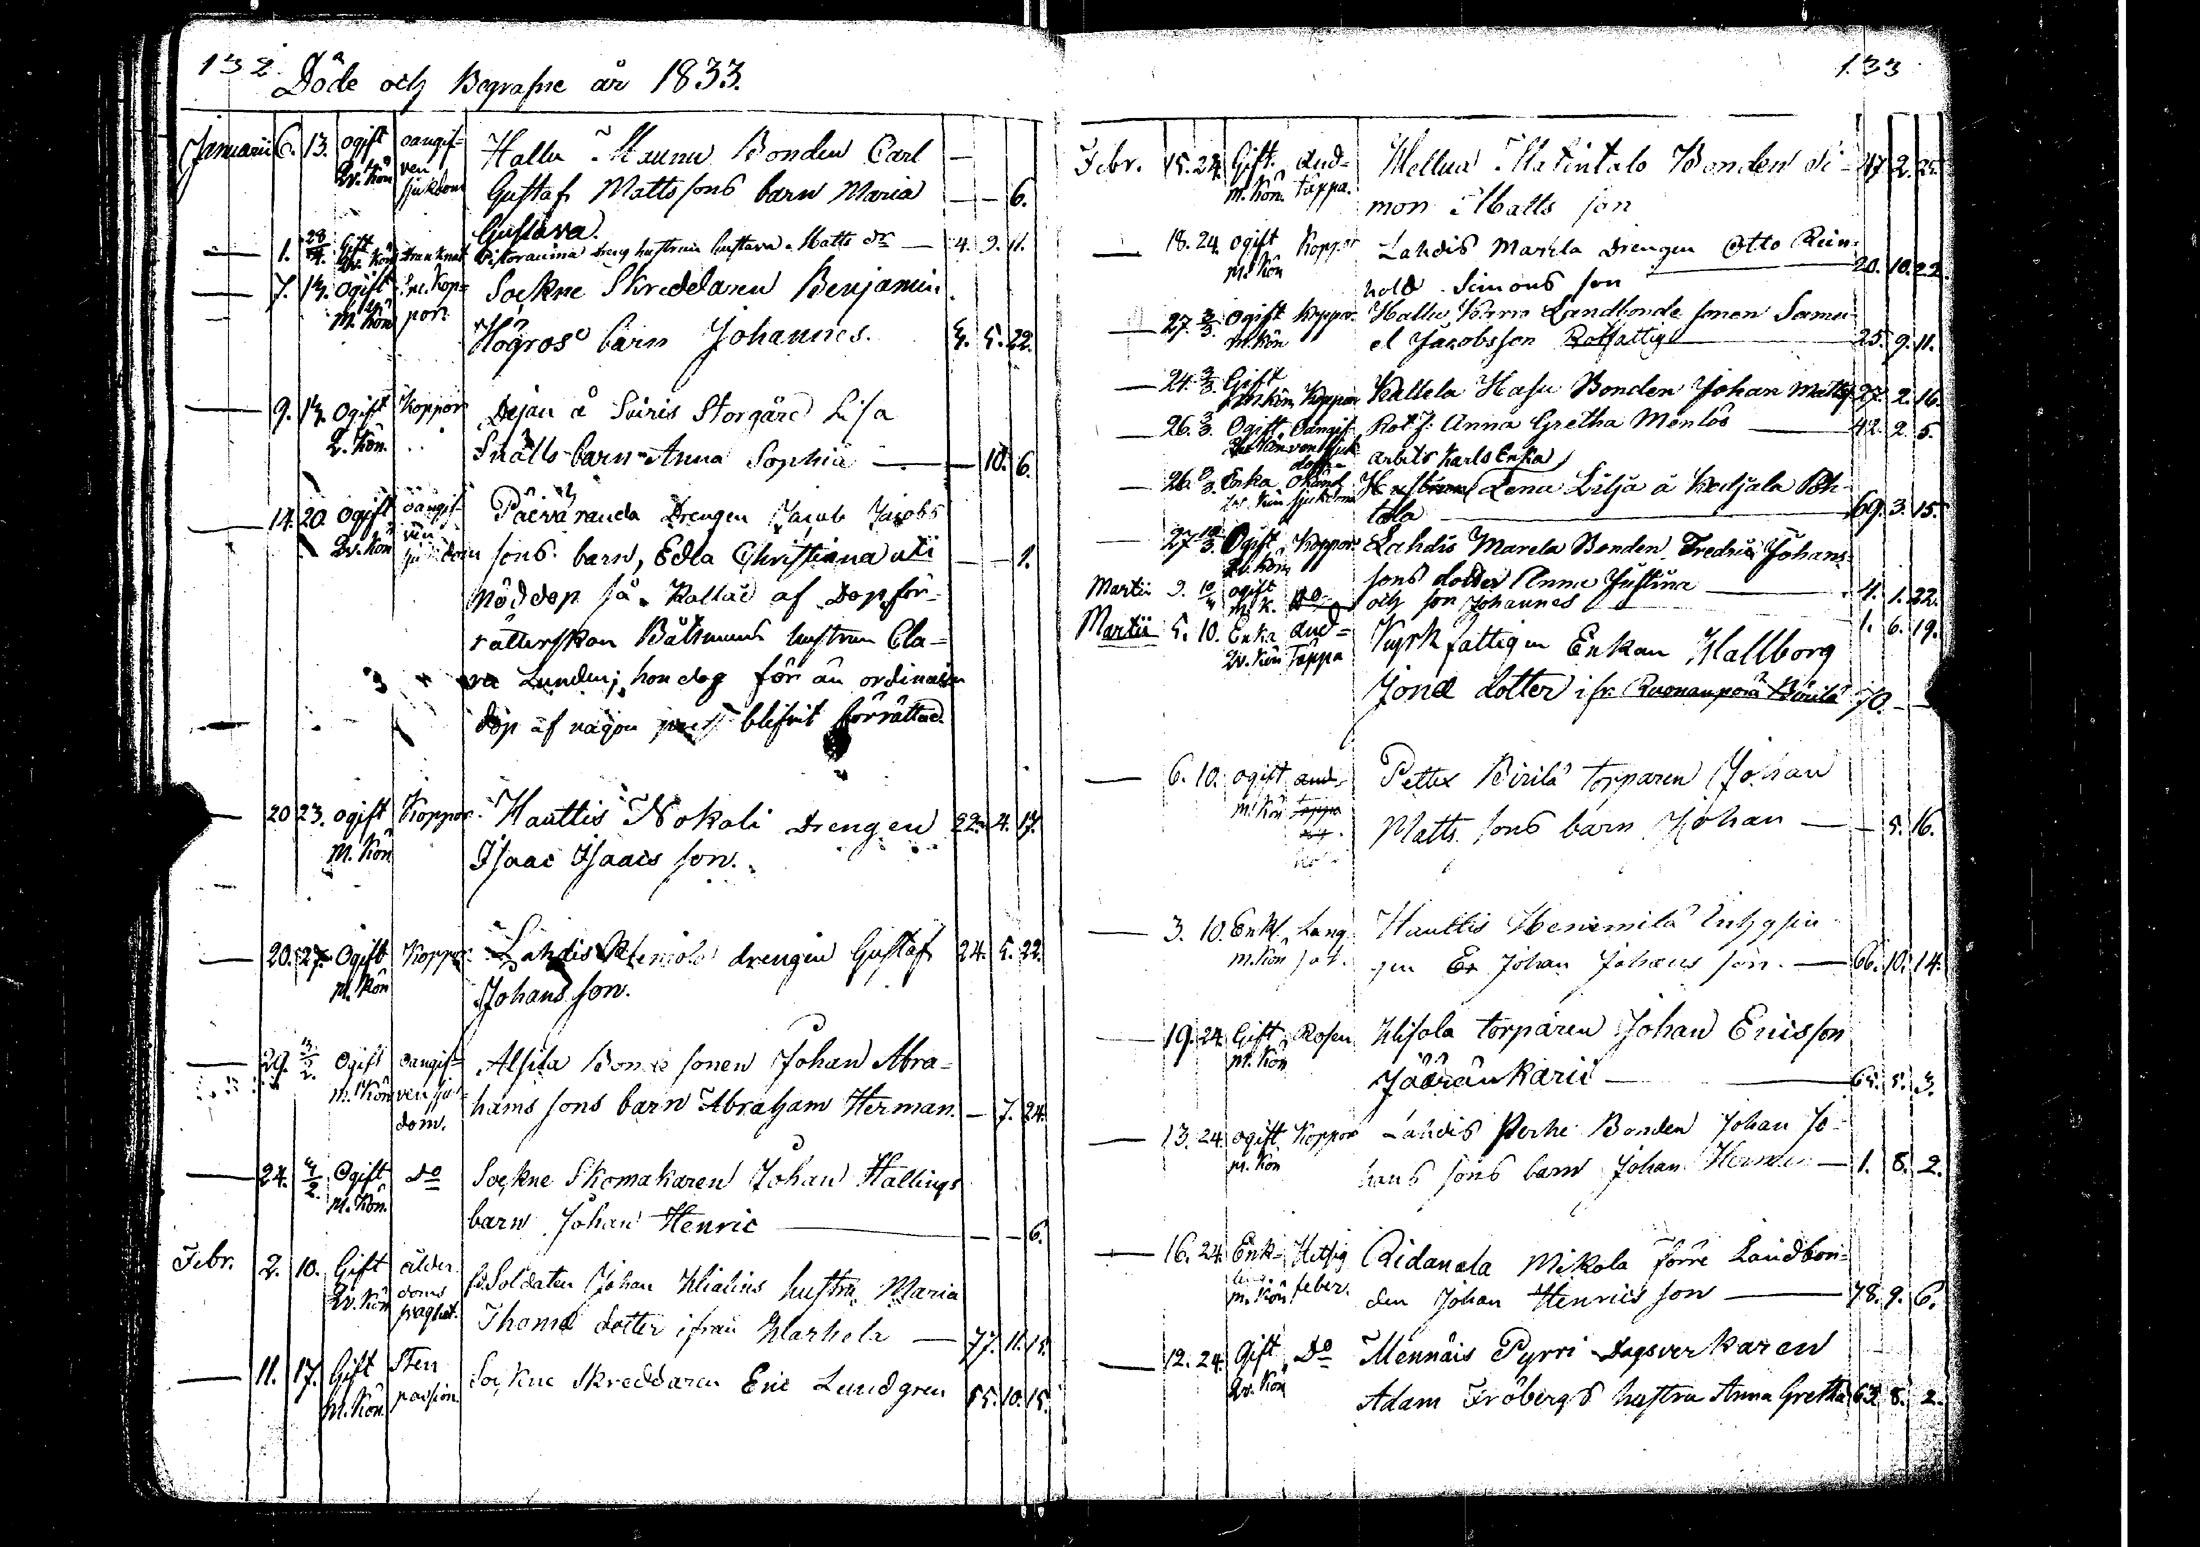 132.
Döde och Begrafne år 1833.
Januarii 6. 13. ogift oangif= Hallu Maunu Bonden Carl —
Qv. Kön ven sjukdom Gustaf Mattssons barn Maria — — 6.
Gustava.
— 1. 28/4. Gift Qv. Kön Drunknat hustrun Gustava Matts dr — 4. 9. 11.
— 7. 14. ogift Kop= Sockne Skreddaren Benjamin
M. Kön por. Högros barn Johannes. 4. 5. 22.
— 9. 14. Ogift Koppor Dejan å Storgård Lisa
Q. Kön. Snälls barn Anna Sophia — — 10. 6.
— 14. 20. Ogift oangif= Drengen Jacob Jacobs
Qv. Kön ven sjukdom sons barn, Edla Christiana uti — — 1.
nöddop så kallad af Dop för=
rätterskan Båtsmans hustrun Cla=
ra Lunden; hon dog för än ordinarie
dop af någon prest blifvit förrättad.
— 20 23. ogift Koppor Hauttis Nokali Drengen 22. 4. 17.
M. Kön Isaac Isaacs son.
— 20. 27. Ogift Koppor Lahdis drengen Gustaf 24. 5. 22.
M. Kön Johans son.
— 29. 3/2. Ogift oangif= Alsila Bonde sonen Johan Abra=
M. Kön ven sjuk= hams sons barn Abraham Herman. — 7. 24.
dom.
— 24. 3/2. Ogift Do Sockne Skomakaren Johan Hallings
M. Kön. barn Johan Henric — — — 6.
Febr. 2. 10. Gift ålder Soldaten Johan hustru Maria
Qv. Kön doms Thomæ dotter ifrån — 77. 11. 15.
— 11. 17. Gift Sten Sockne Skreddaren Eric Lundgren 55. 10. 15.
M. Kön passion.
133
Febr. 15. 24. Gift. And= Mellua Matintalo Bonden Si= 47. 2. 25.
M. Kön. täppa. mon Matts son
— 18. 24. ogift Koppor Lahdis Markla Drengen Otto Rein=
M. Kön hold Simons son — 20. 10. 22.
— 27. 3/3. Ogift Koppor Hallu Landbonde sonen Samu=
M. Kön el Jacobsson Rotfattig — 25. 9. 11.
— 24. 3/3. Gift M. Kön Koppor Kallela Hasu Bonden Johan Matts 27. 2. 16.
— 26. 3/3. Ogift Oangif= Rot f. Anna Gretha Menlös — 42. 2. 5.
arbets Karls Enka
— 26. 3/3. Enka Okänd Hustrun Lena Lilja å
Qv. Kön sjukdom — 69. 3. 15.
— 27. 10/3. Ogift Koppor Lahdis Marcla Bonden Fredric Johans=
Qv. Kön sons dotter Anna Justina — 4. 1. 22.
Martii 9. 10/4 ogift M. K. Do och son Johannes 1. 6. 19.
Martii 5. 10. Enka And= Kyrk fattigen Enkan Wallborg
Qv. Kön täppa Jonæ dotter ifr. 70. — —
— 6. 10. ogift and= Petter Birilä torparen Johan
M. Kön täppa Matts sons barn Johan — — 5. 16.
— 3. 10. Enkl. Lung Hauttis Inhysin
M. Kön sot. gen Johan Johans son. — 66. 10. 14.
— 19. 24. Gift Rosen torparen Johan Ericsson
M. Kön — 65. 5. 3.
— 13. 24. ogift Koppor Lahdis Perhe Bonden Johan Jo=
M. Kön hans sons barn Johan Herman — 1. 8. 2.
— 16. 24. Enk= Hetsig Ridanela Mikola förre Landbon=
M. Kön feber. den Johan Henrics son — 78. 9. 6.
— 12. 24. Gift Do Mennäis Pyrri Dagsverkaren
Qv. Kön Adam Fröbergs hustru Anna Gretha 63. 8. 2.